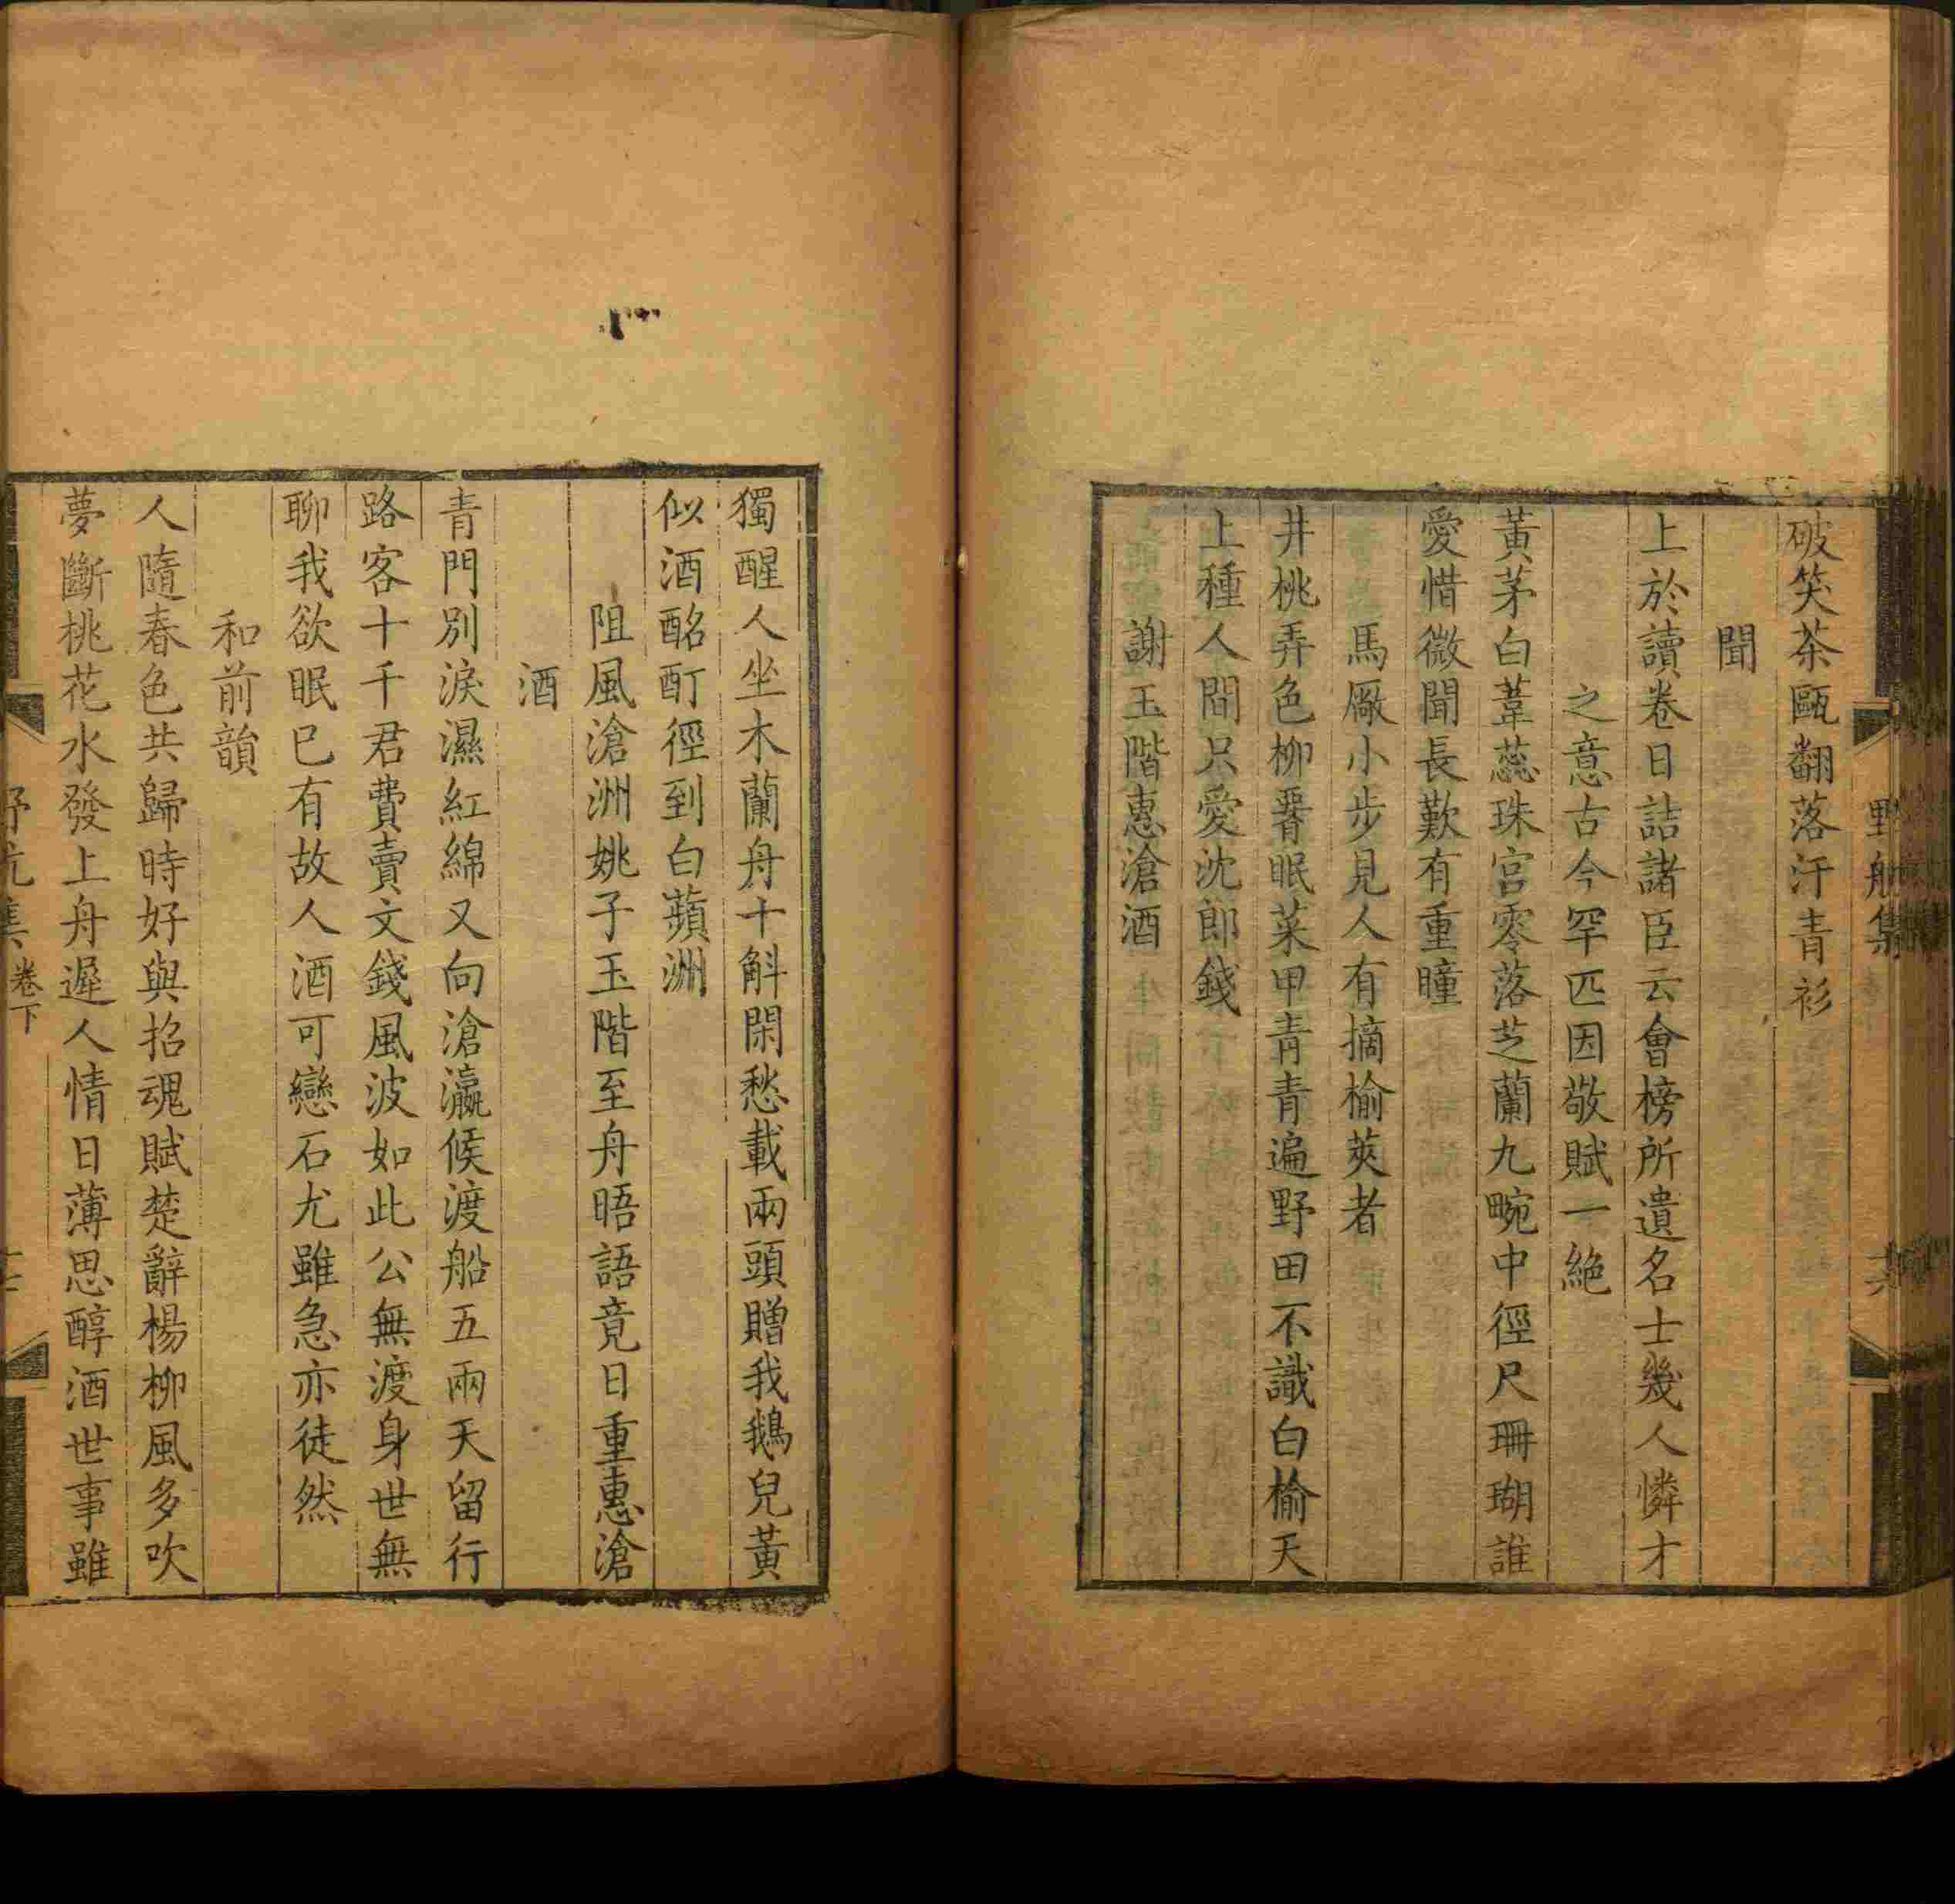 野航集
十六
破笑茶甌翻落汗青衫
聞
上於讀卷日詰諸臣云會榜所遺名士幾人憐才
之意古今罕匹因敬賦一絕
黃茅白葦蕊珠宮零落芝蘭九畹中徑尺珊瑚誰
愛惜微聞長歎有重瞳
馬廠小步見人有摘榆莢者
井桃弄色柳眷眠菜甲青青遍野田不識白榆天
上種人間只愛沈郎錢
謝玉階惠滄酒
獨醒人坐木蘭舟十斛閑愁載兩頭贈我鵝兒黃
似酒酩酊徑到白蘋洲
阻風滄洲姚子玉階至舟晤語竟日重惠滄
酒
青門別淚濕紅綿又向滄瀛候渡船五兩天留行
路客十千君費賣文錢風波如此公無渡身世無
聊我欲眠巳有故人酒可戀石尤雖急亦徒然
和前韻
人隨春色共歸時好與招魂賦楚辭楊柳風多吹
夢斷桃花水發上舟遲人情日薄思醇酒世事雖
野航集
卷下